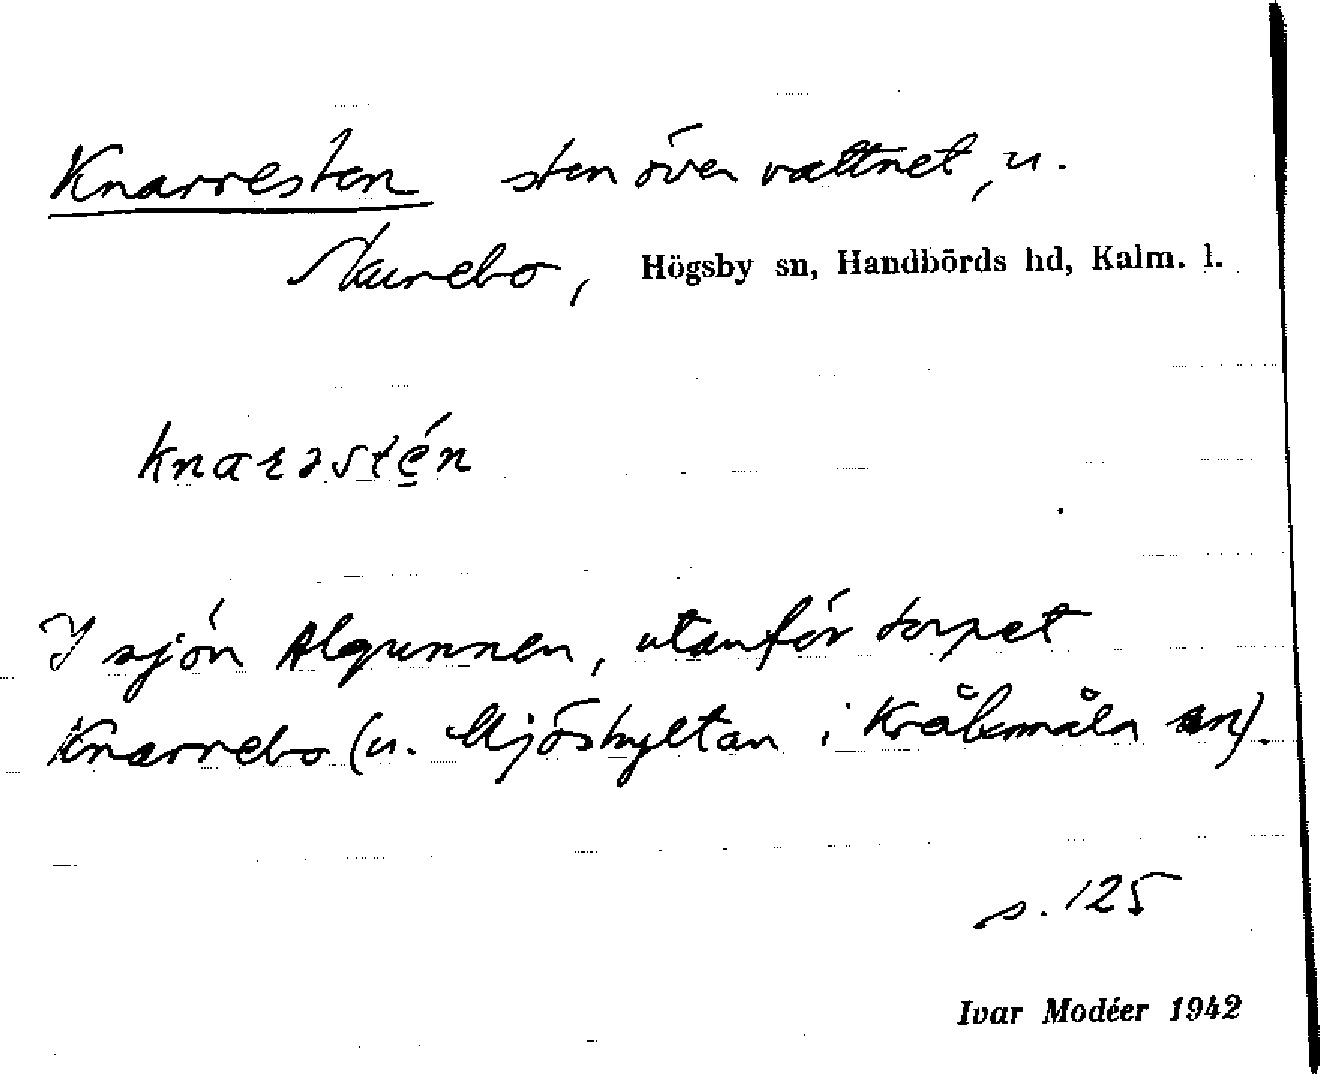 Knarresten sten över vattnet, u.
Aurebo, Högsby sn, Handbörds hd, Kalm. l.
knarəstén
I sjön Algunnen, utanför torpet
Knarrebo (u. Mjöshyltan i Kråksmåla sn).
s. 125
Ivar Modéer 1942